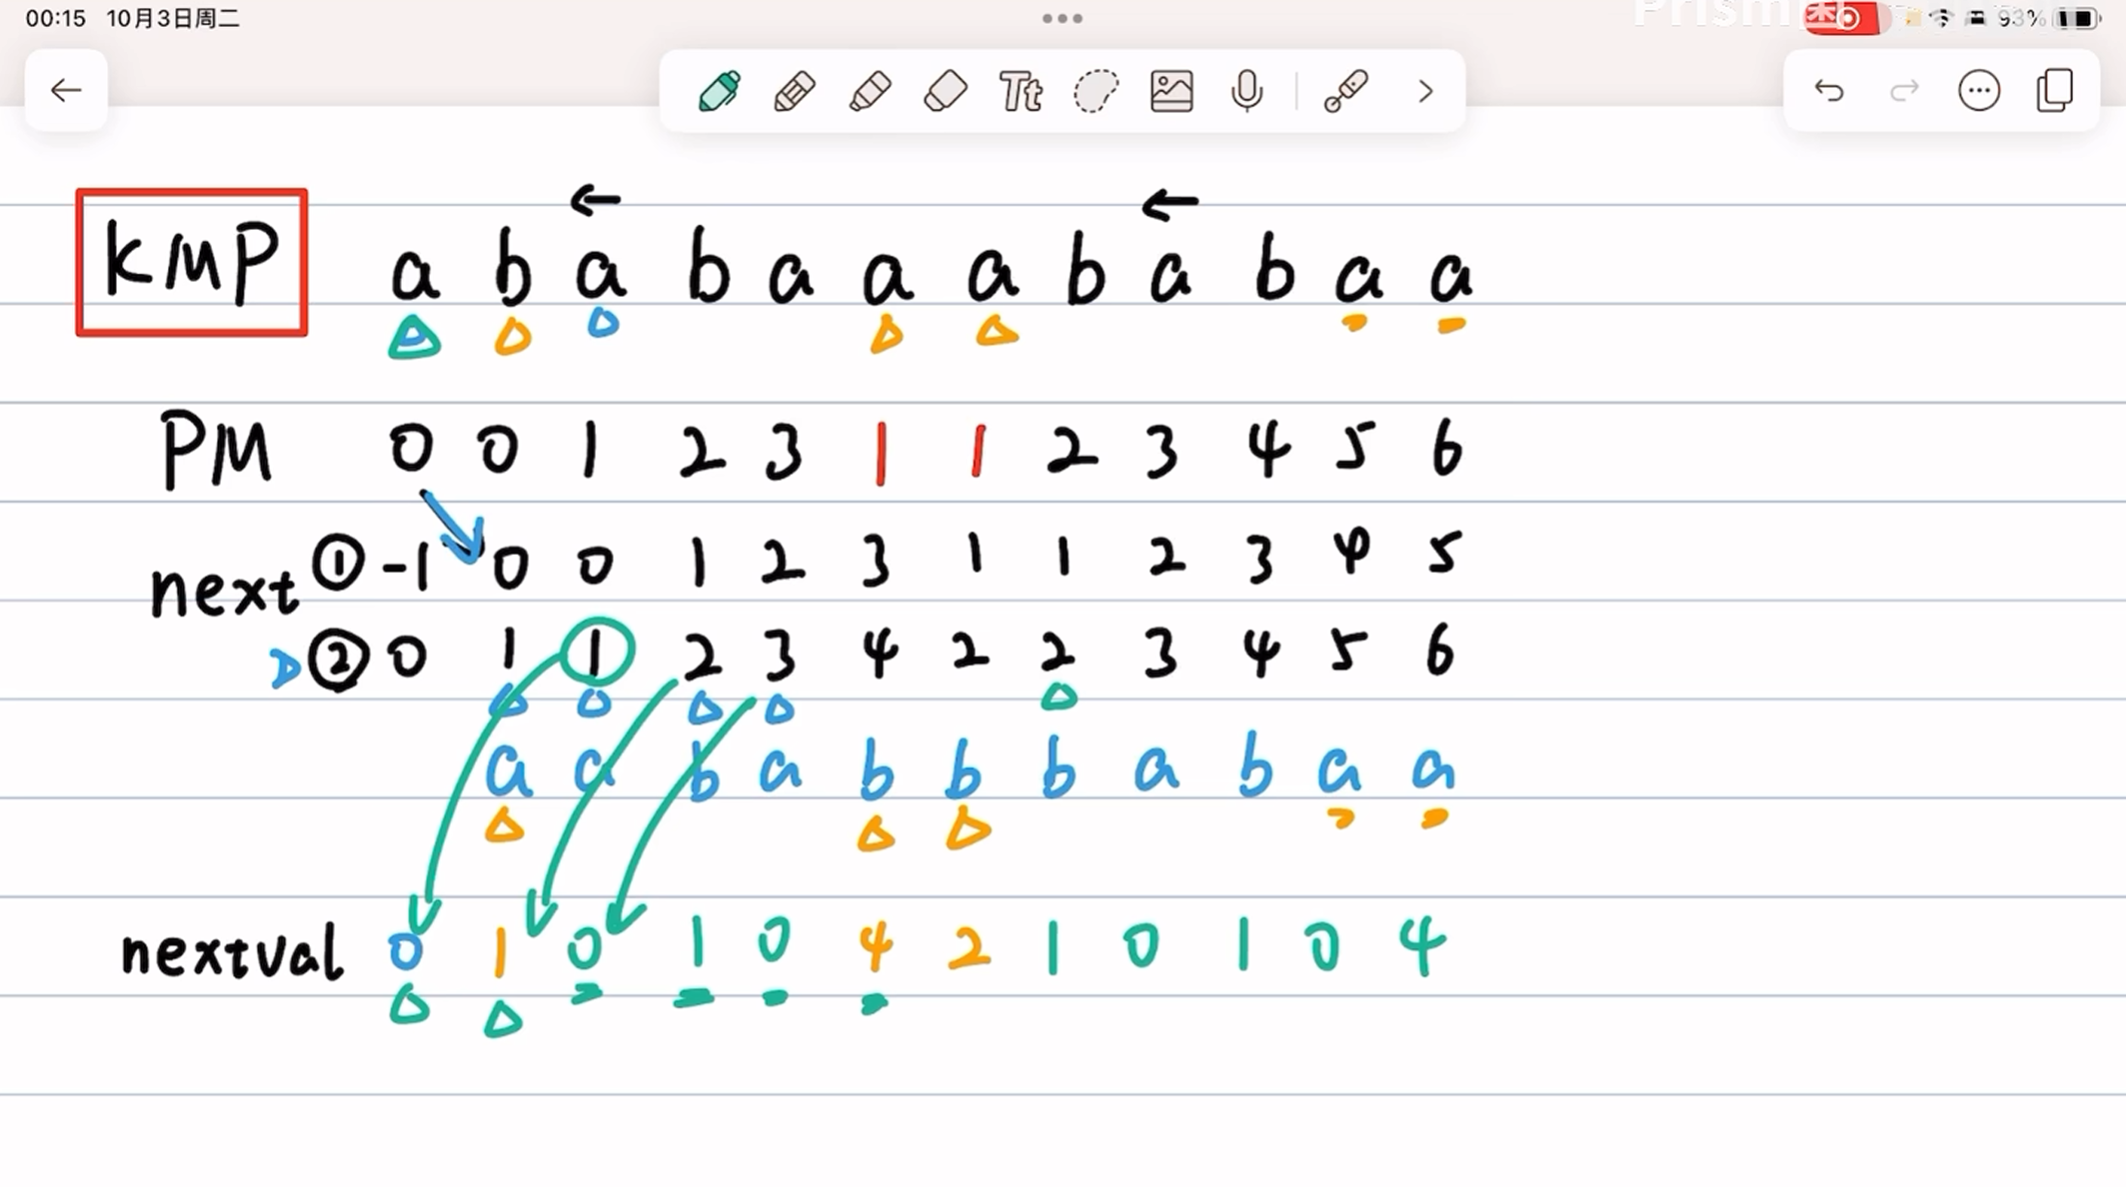 00:15 10月3日周二
Prism 93%
Tt
KMP a b a b a a a b a b a a
PM 0 0 1 2 3 1 1 2 3 4 5 6
next ① -1 0 0 1 2 3 1 1 2 3 4 5
② 0 1 1 2 3 4 2 2 3 4 5 6
a a b a b b b a b a a
nextval 0 1 0 1 0 4 2 1 0 1 0 4